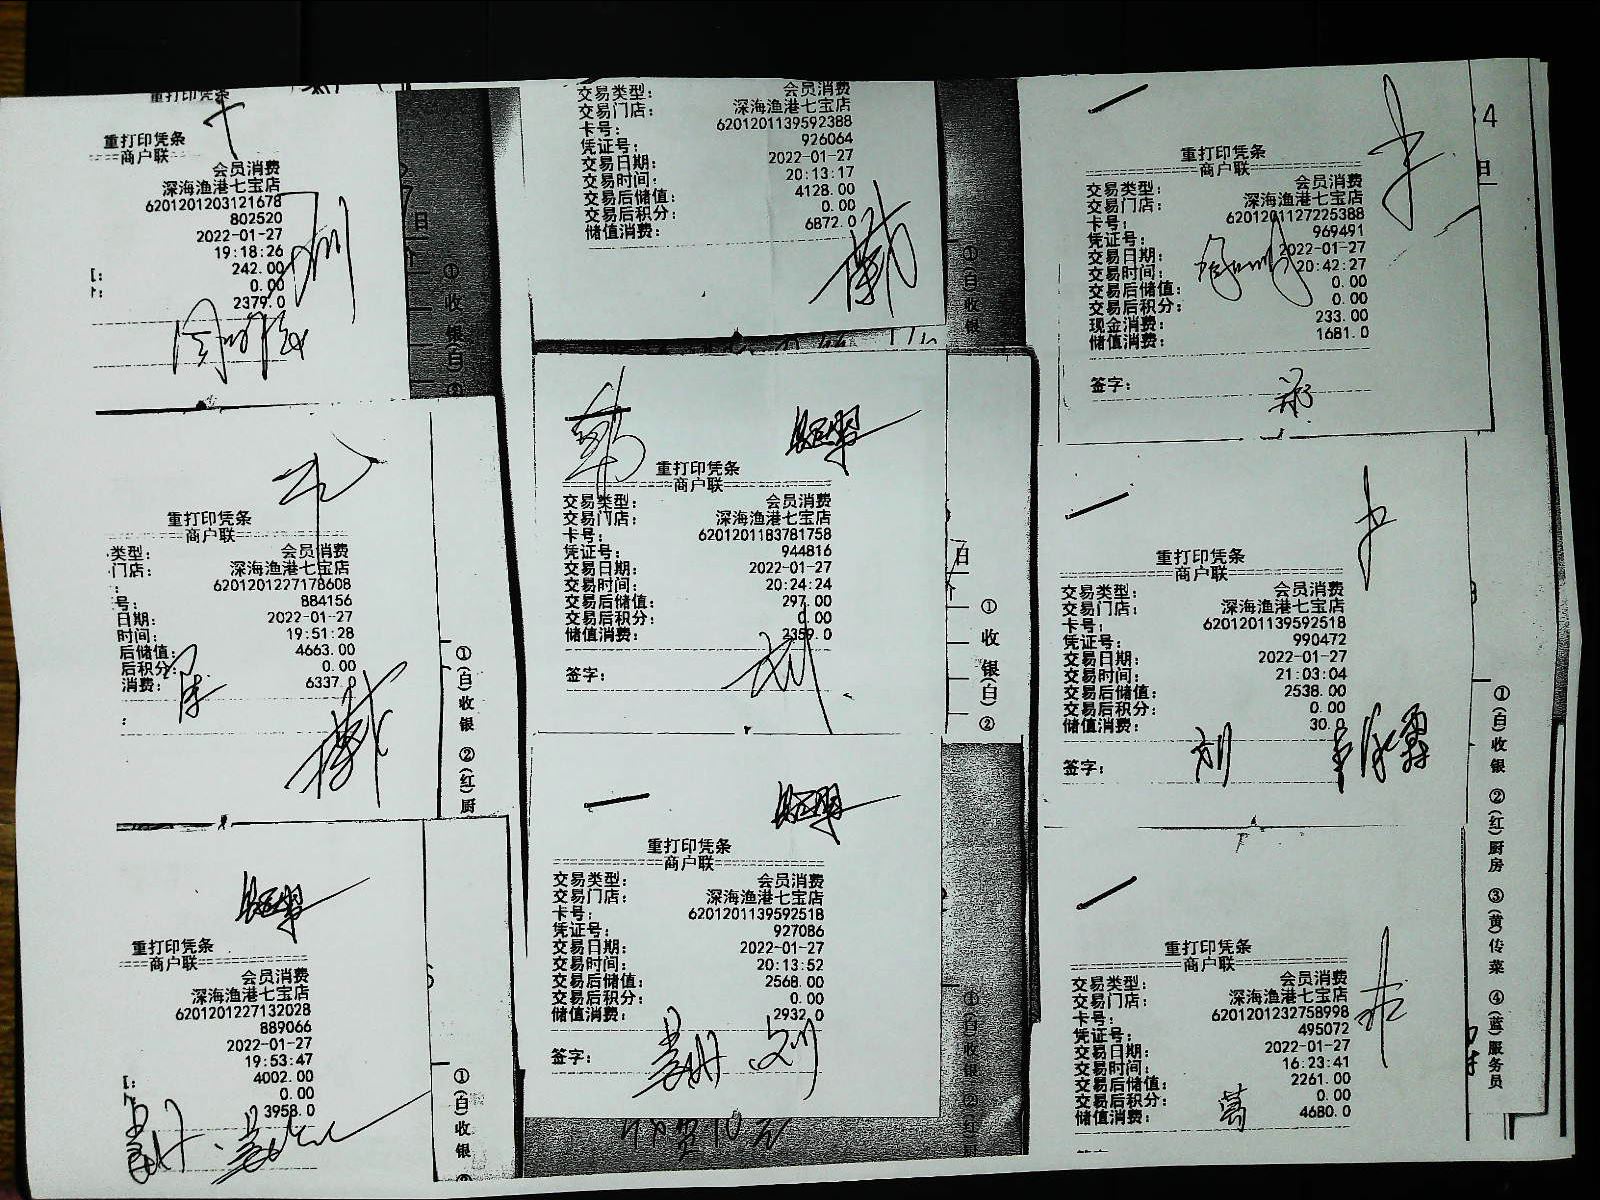 重打印凭条
重打印凭条
商户联
会员消费
深海渔港七宝店
6201201203121678
802520
2022-01-27
19:18:26
242.00
0.00
2379.0
重打印凭条
商户联
类型: 会员消费
门店: 深海渔港七宝店
: 6201201227178608
号: 884156
日期: 2022-01-27
时间: 19:51:28
后储值: 4663.00
后积分: 0.00
消费: 6337.0
:
重打印凭条
商户联
会员消费
深海渔港七宝店
6201201227132028
889066
2022-01-27
19:53:47
4002.00
0.00
3958.0
日
① 收 银(白) ②
①(白)收银 ②(红)厨
①(白)收银
交易类型:
交易门店: 深海渔港七宝店
卡号: 6201201139592388
凭证号: 926064
交易日期: 2022-01-27
交易时间: 20:13:17
交易后储值: 4128.00
交易后积分: 0.00
储值消费: 6872.0
韩
重打印凭条
商户联
交易类型: 会员消费
交易门店: 深海渔港七宝店
卡号: 6201201183781758
凭证号: 944816
交易日期: 2022-01-27
交易时间: 20:24:24
交易后储值: 297.00
交易后积分: 0.00
储值消费: 2359.0
签字:
重打印凭条
商户联
交易类型: 会员消费
交易门店: 深海渔港七宝店
卡号: 6201201139592518
凭证号: 927086
交易日期: 2022-01-27
交易时间: 20:13:52
交易后储值: 2568.00
交易后积分: 0.00
储值消费: 2932.0
签字:
刘
①白收银
日
① 收 银(白) ②
重打印凭条
商户联
交易类型: 会员消费
交易门店: 深海渔港七宝店
卡号: 6201201127225388
凭证号: 969491
交易日期: 2022-01-27
交易时间: 20:42:27
交易后储值: 0.00
交易后积分: 0.00
现金消费: 233.00
储值消费: 1681.0
签字: 郑
重打印凭条
商户联
交易类型: 会员消费
交易门店: 深海渔港七宝店
卡号: 6201201139592518
凭证号: 990472
交易日期: 2022-01-27
交易时间: 21:03:04
交易后储值: 2538.00
交易后积分: 0.00
储值消费: 30.0
签字: 刘
重打印凭条
商户联
交易类型: 会员消费
交易门店: 深海渔港七宝店
卡号: 6201201232758998
凭证号: 495072
交易日期: 2022-01-27
交易时间: 16:23:41
交易后储值: 2261.00
交易后积分: 0.00
储值消费: 4680.0
4
日
①(白)收银 ②(红)厨房 ③(黄)传菜 ④(蓝)服务员